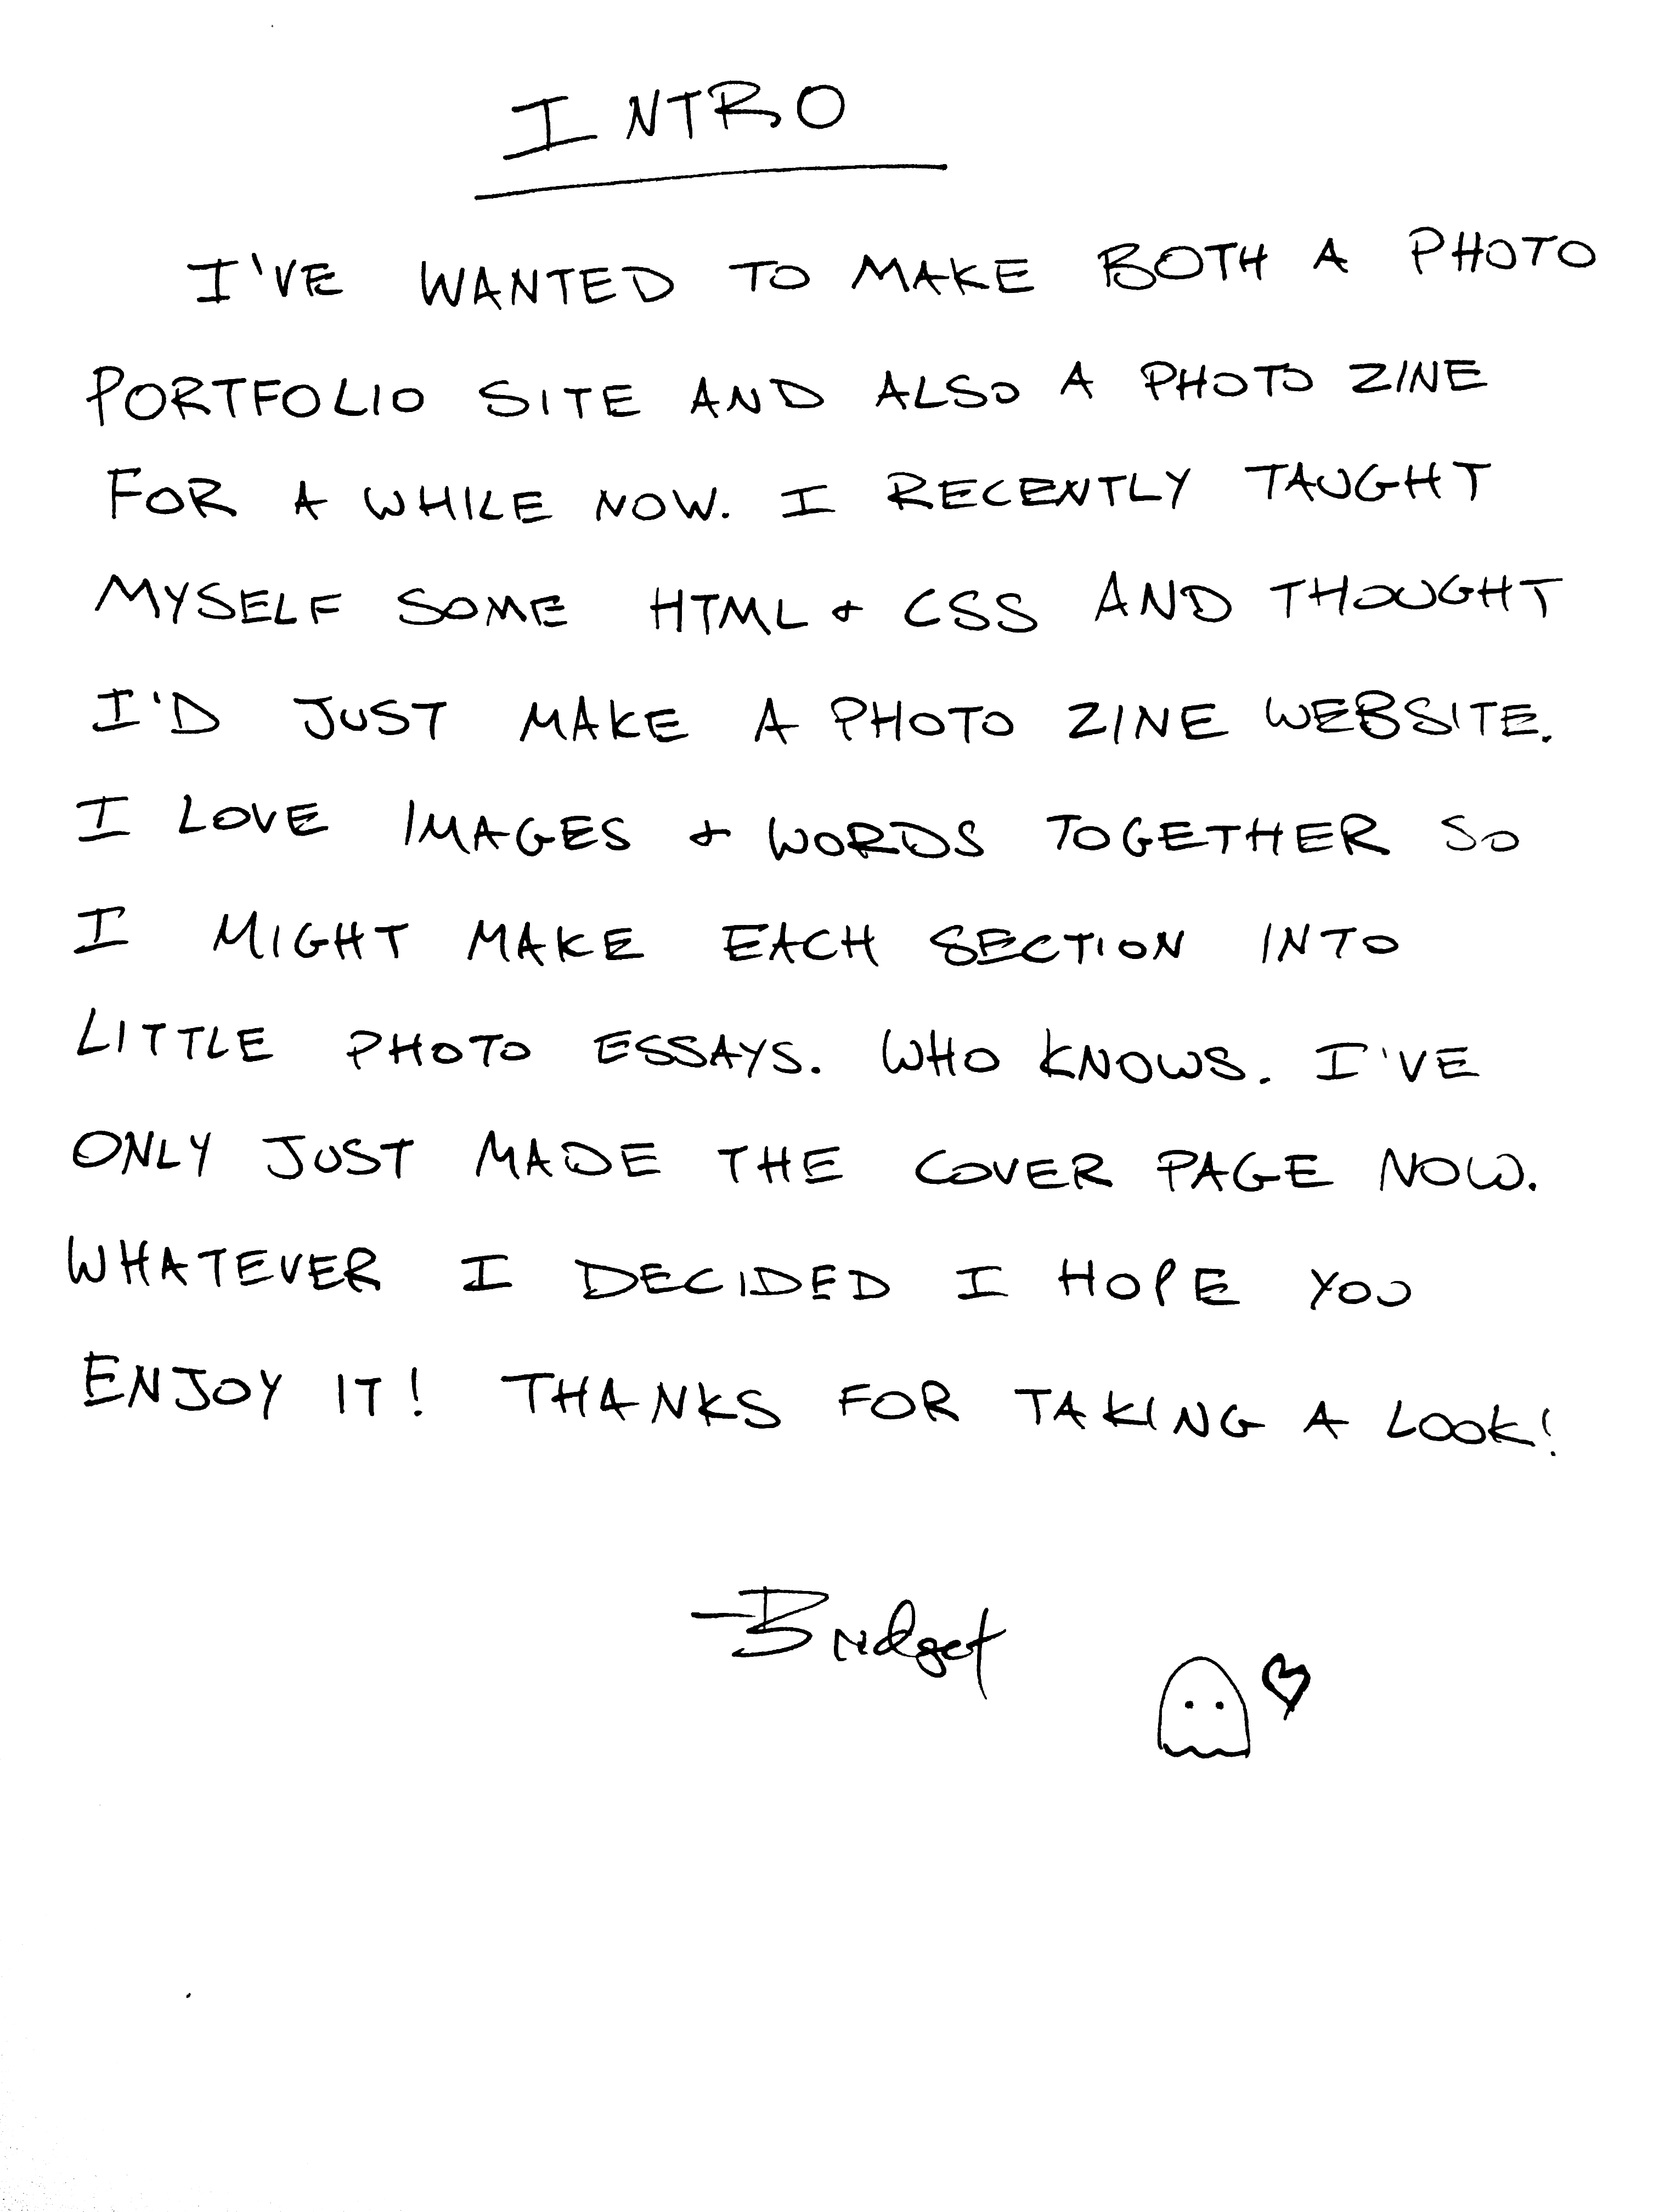 INTRO
I'VE WANTED TO MAKE BOTH A PHOTO
PORTFOLIO SITE AND ALSO A PHOTO ZINE
FOR A WHILE NOW. I RECENTLY TAUGHT
MYSELF SOME HTML & CSS AND THOUGHT
I'D JUST MAKE A PHOTO ZINE WEBSITE.
I LOVE IMAGES & WORDS TOGETHER SO
I MIGHT MAKE EACH SECTION INTO
LITTLE PHOTO ESSAYS. WHO KNOWS. I'VE
ONLY JUST MADE THE COVER PAGE NOW.
WHATEVER I DECIDED I HOPE YOU
ENJOY IT! THANKS FOR TAKING A LOOK!
—Bridget